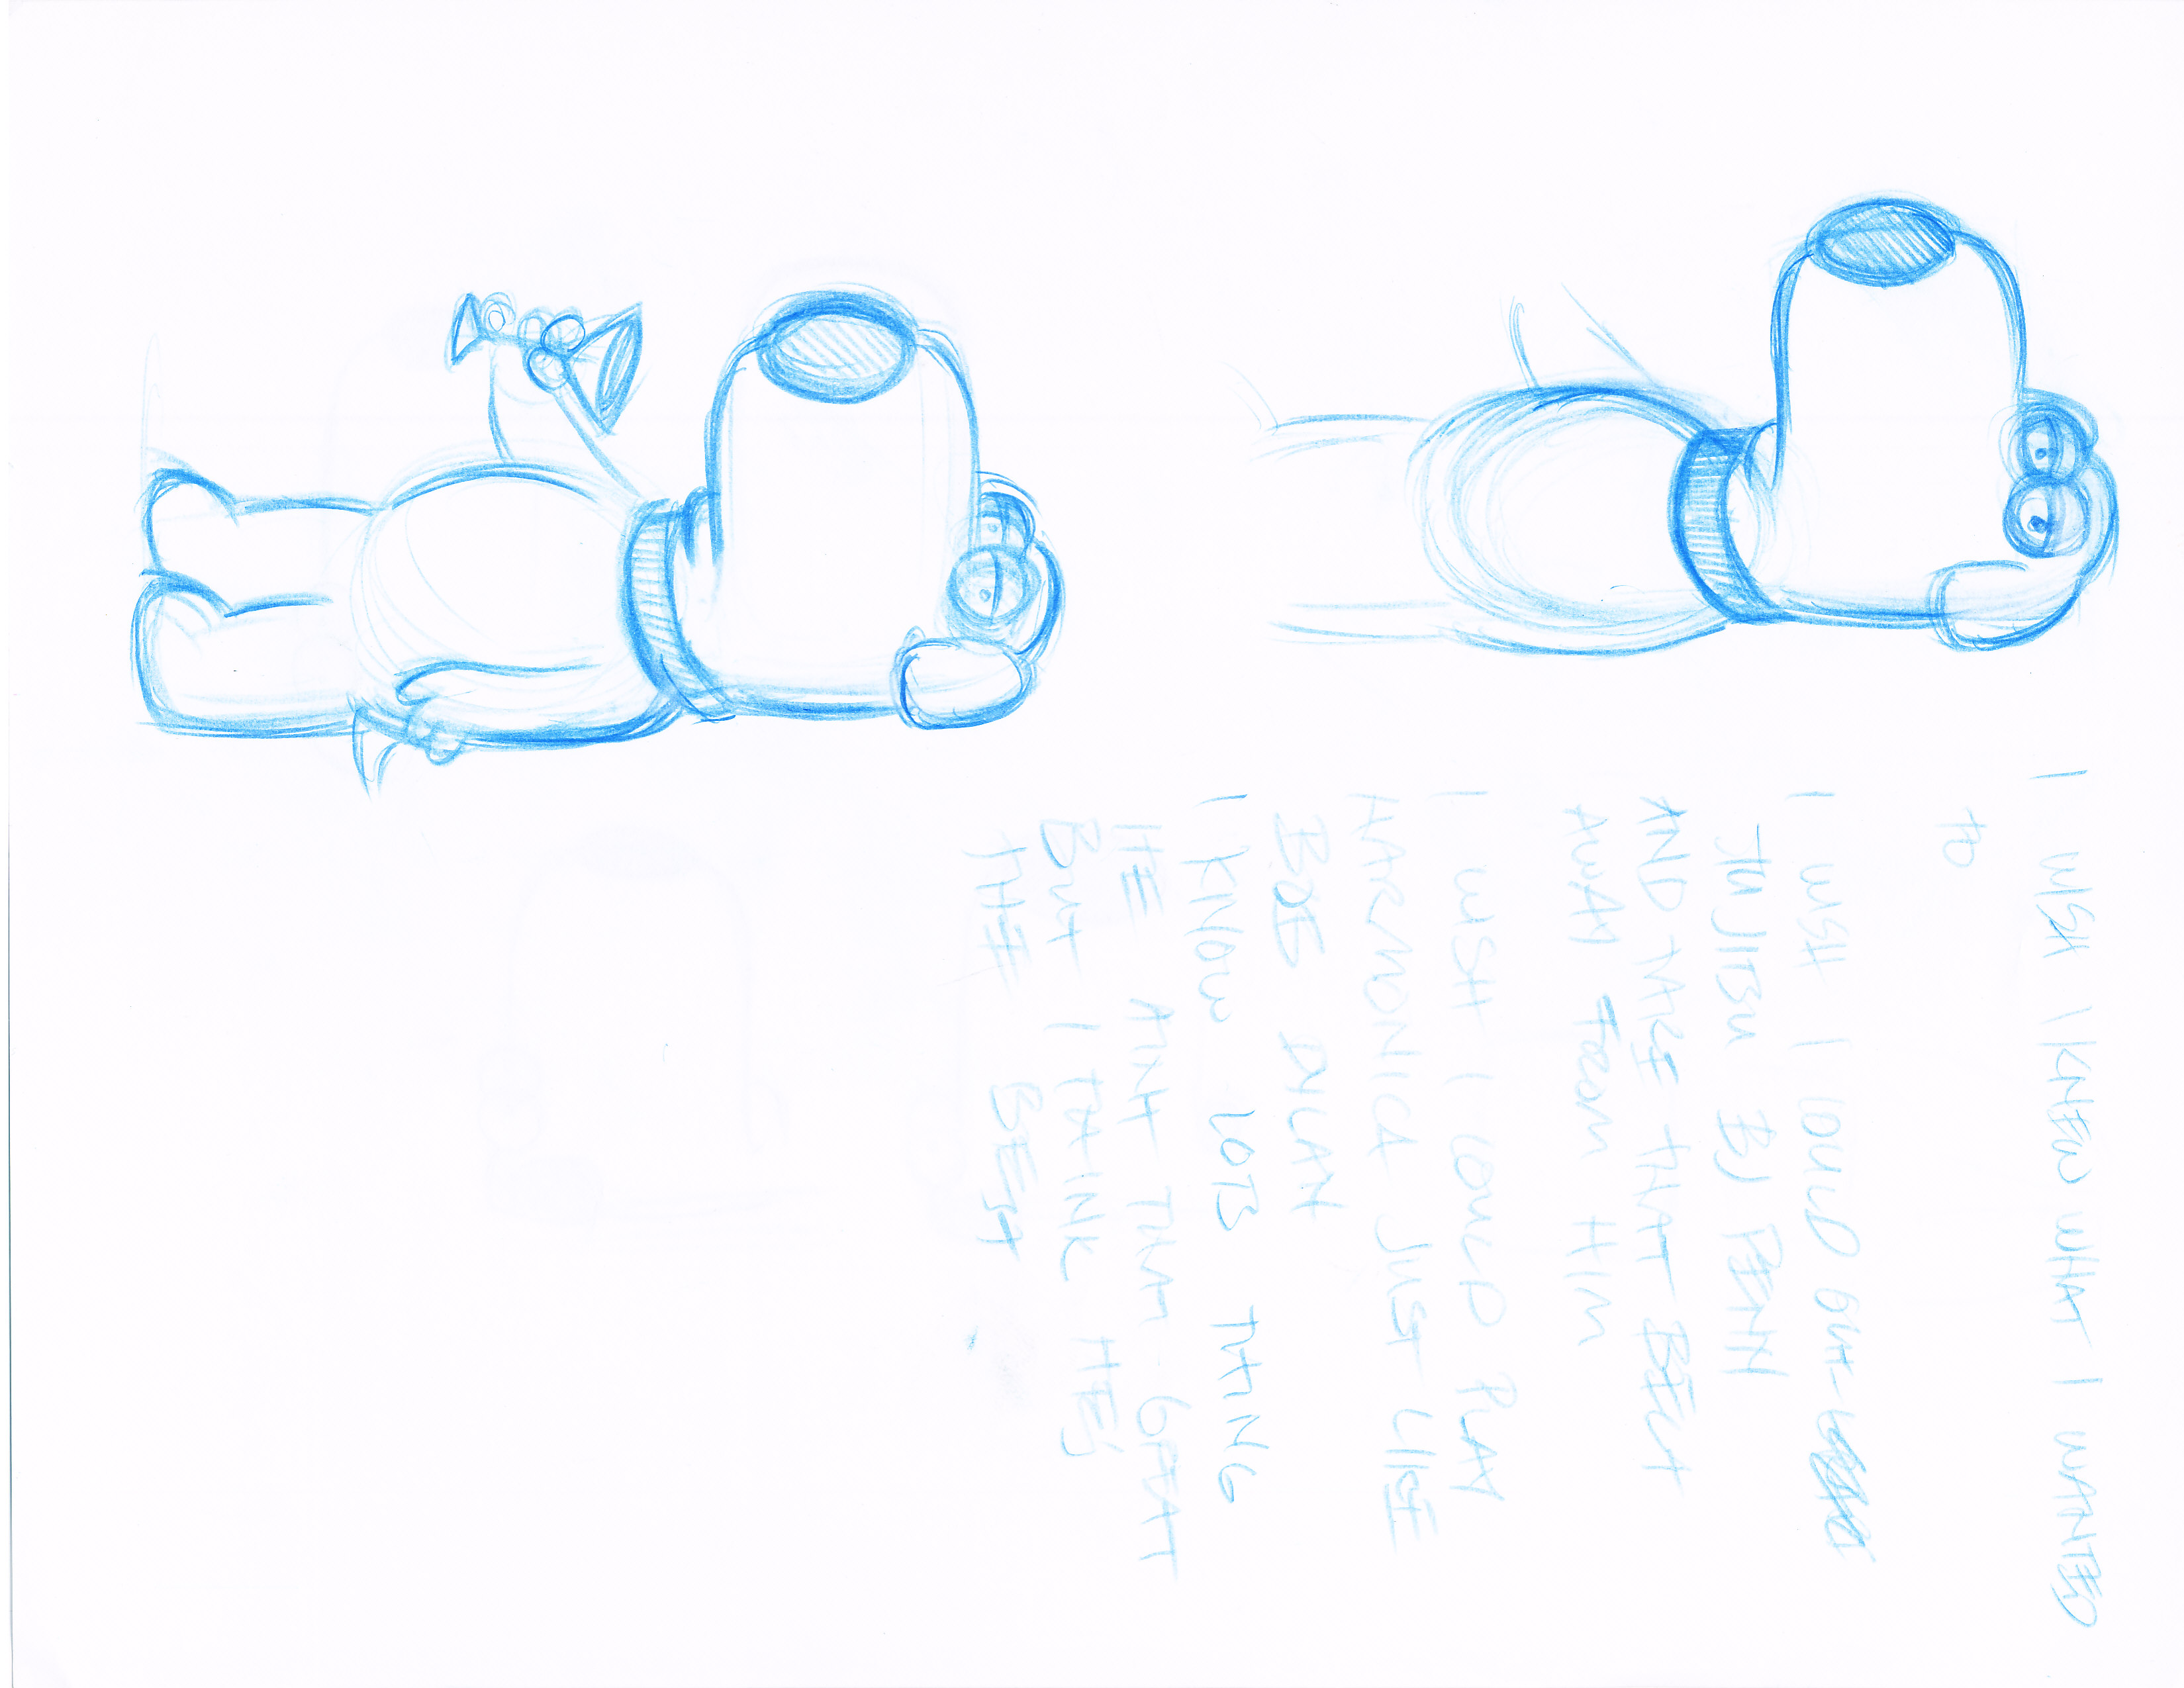 I WISH I KNEW WHAT I WANTED
TO
I WISH I COULD OUT-
JUJITSU BJ PENN
AND TAKE THAT BELT
AWAY FROM HIM
I WISH I COULD PLAY
HARMONICA JUST LIKE
BOB DYLAN
I KNOW LOTS THING
HE AINT THAT GREAT
BUT I THINK HE'S
THE BEST